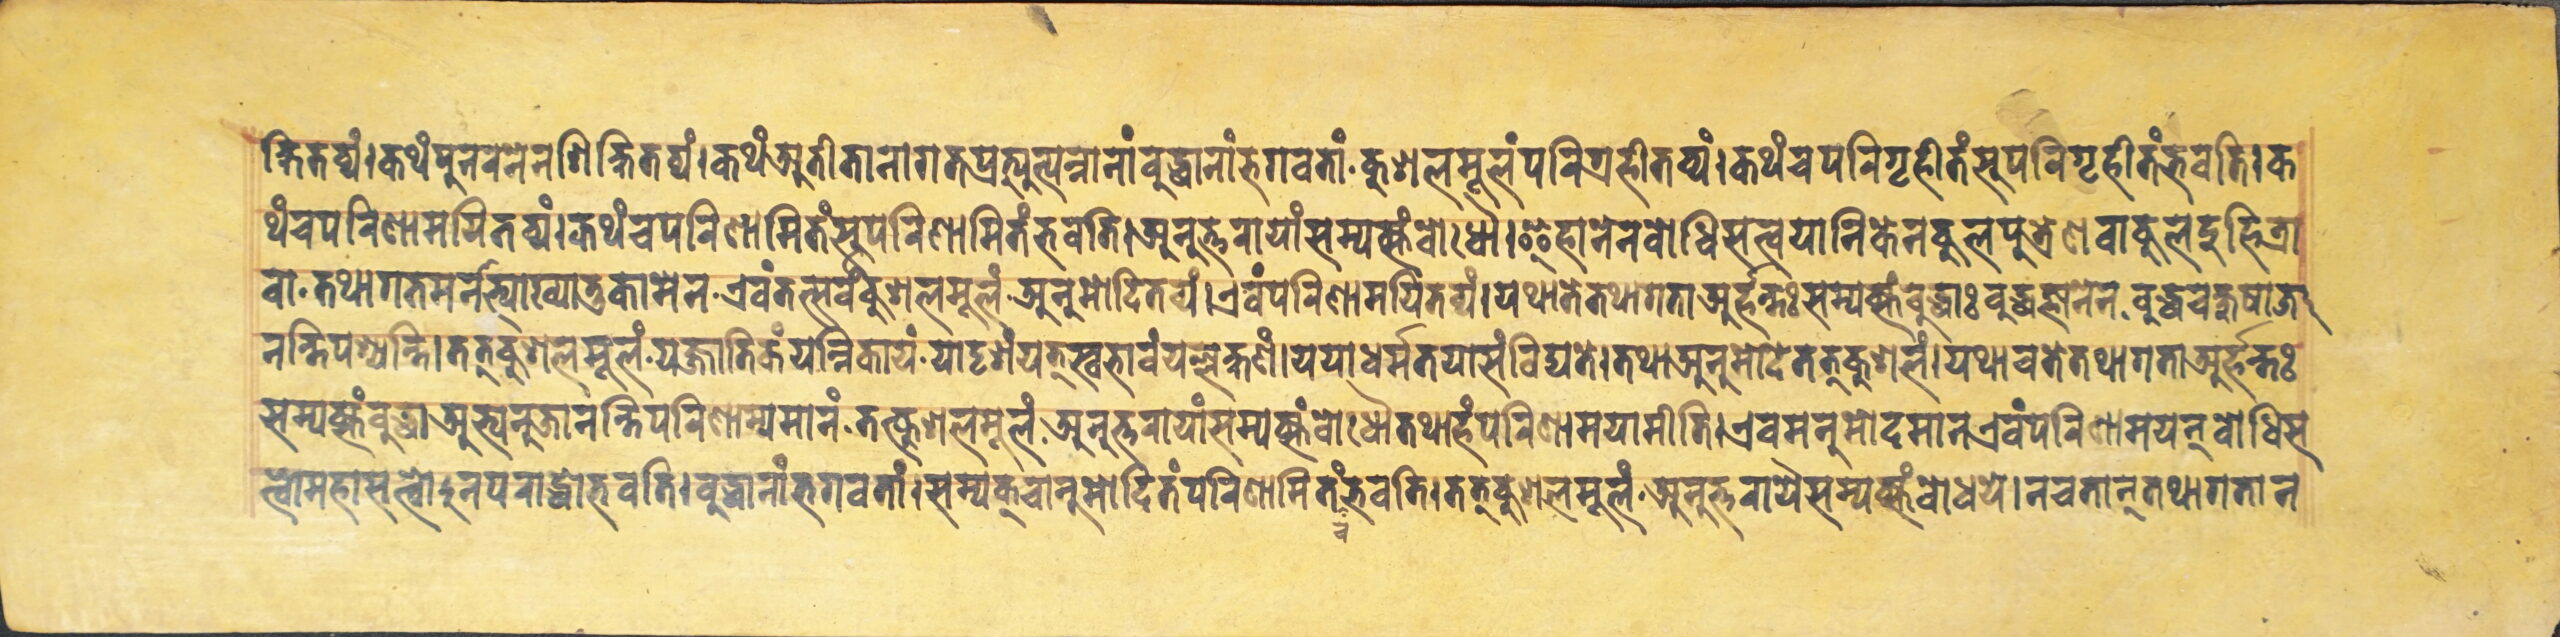 क्षितव्यं।कथंपुनरनेनशिक्षितव्यं।कथंअतीतानागतप्रत्युत्पन्नानांबुद्धानांभगवतां·कुशलमूलंपरिग्रहीतव्यं।कथंचपरिगृहीतंसुपरिगृहीतंभवति।क
थंचपरिणामयितव्यं।कथंचपरिणामितंसुपरिणामितंभवति।अनुत्तरायांसम्यक्संबोधौ।इहानेनबोधिसत्त्वयानिकेनकुलपुत्रेणवाकुलदुहित्रा
वा·तथागतमनभ्याख्यातुकामेन·एवंतत्सर्वंकुशलमूलं·अनुमोदितव्यं।एवंपरिणामयितव्यं।यथातेतथागताअर्हन्तःसम्यक्संबुद्धाःबुद्धज्ञानेन·बुद्धचक्षुषाजा
नन्तिपश्यन्ति।तत्कुशलमूलं·यज्जातिकंयन्निकायं·यादृशंयत्स्वभावंयल्लक्षणं।ययाधर्मतयासंविद्यते।तथाअनुमोदेतत्कुशलं।यथाचतेतथागताअर्हन्तः
सम्यक्संबुद्धाअभ्यनुजानन्तिपरिणाम्यमानं·तत्कुशलमूलं·अनुत्तरायांसम्यक्संबोधौतथाहंपरिणामयामीति।एवमनुमोदमानएवंपरिणामयन्बोधिस
त्त्वोमहासत्त्वोऽनपराद्धोभवति।बुद्धानांभगवतां।सम्यक्चानुमोदितंपरिणामितंभवति।तत्कुशलमूलं·अनुत्तरायैसम्यक्संबोधये।नचतान्तथागतान
च